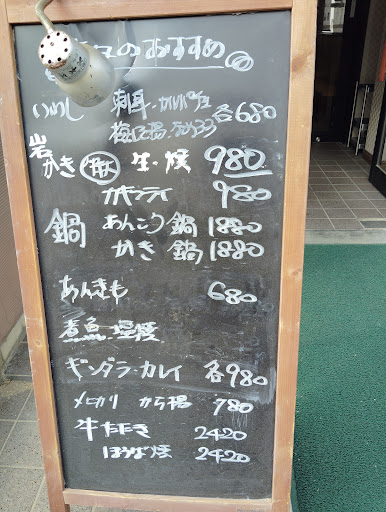 のおすすめ
いわし 刺身・カルパッチョ 各680
岩かき 生・焼 980
カキフライ 980
鍋 あんこう鍋 1880
かき鍋 1880
あんきも 680
煮魚・塩焼
ギンダラ・カレイ 各980
メヒカリ から揚 780
牛たたき 2420
ほうば焼 2420